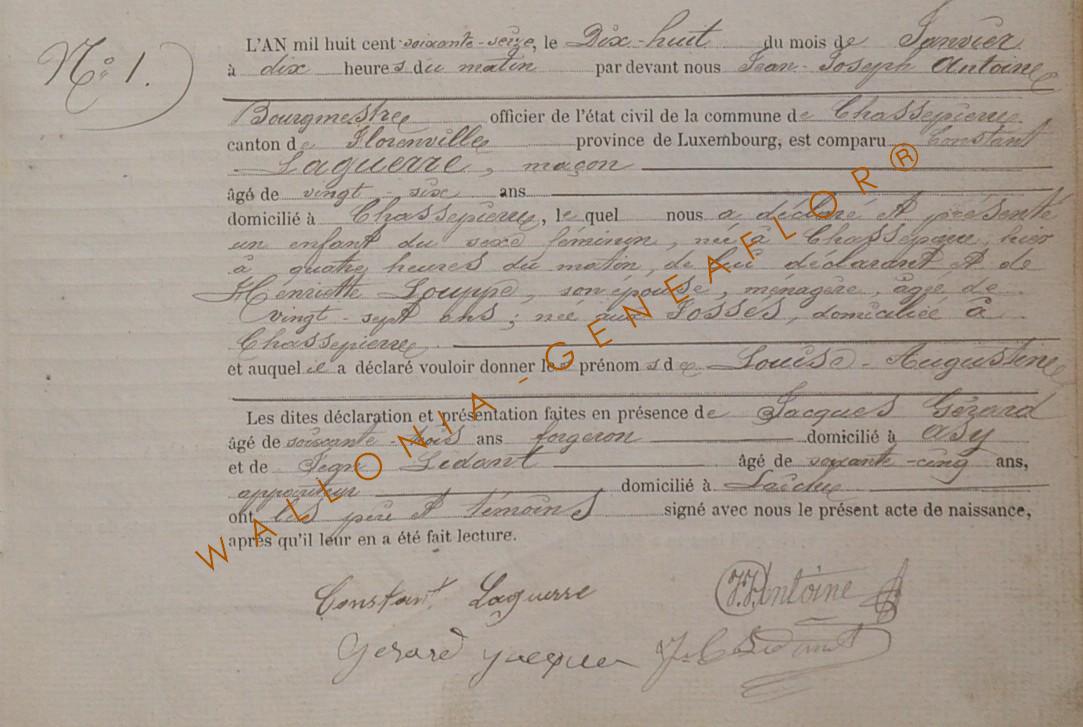 N° 1.
L'AN mil huit cent soixante-seize, le Dix-huit du mois de Janvier
à dix heures du matin par devant nous Jean-Joseph Antoine
Bourgmestre officier de l'état civil de la commune de Chassepierre
canton de Florenville province de Luxembourg, est comparu Constant
Laguerre, maçon
âgé de vingt-six ans
domicilié à Chassepierre, lequel nous a déclaré et présenté
un enfant du sexe féminin, née à Chassepierre, hier
à quatre heures du matin, de lui déclarant et de
Henriette Louppe, son épouse, ménagère, âgée de
vingt-sept ans; née aux Fossés, domiciliée à
Chassepierre.
et auquel il a déclaré vouloir donner les prénoms de Louise-Augustine
Les dites déclaration et présentation faites en présence de Jacques Gérard
âgé de soixante-trois ans forgeron domicilié à Asy
et de Lédant âgé de soixante-cinq ans,
appariteur domicilié à Laiche
ont les père et témoins signé avec nous le présent acte de naissance,
après qu'il leur en a été fait lecture.
Constant Laguerre J.J. Antoine
Gerard Jacques
WALLONIA-GENEAFLOR®